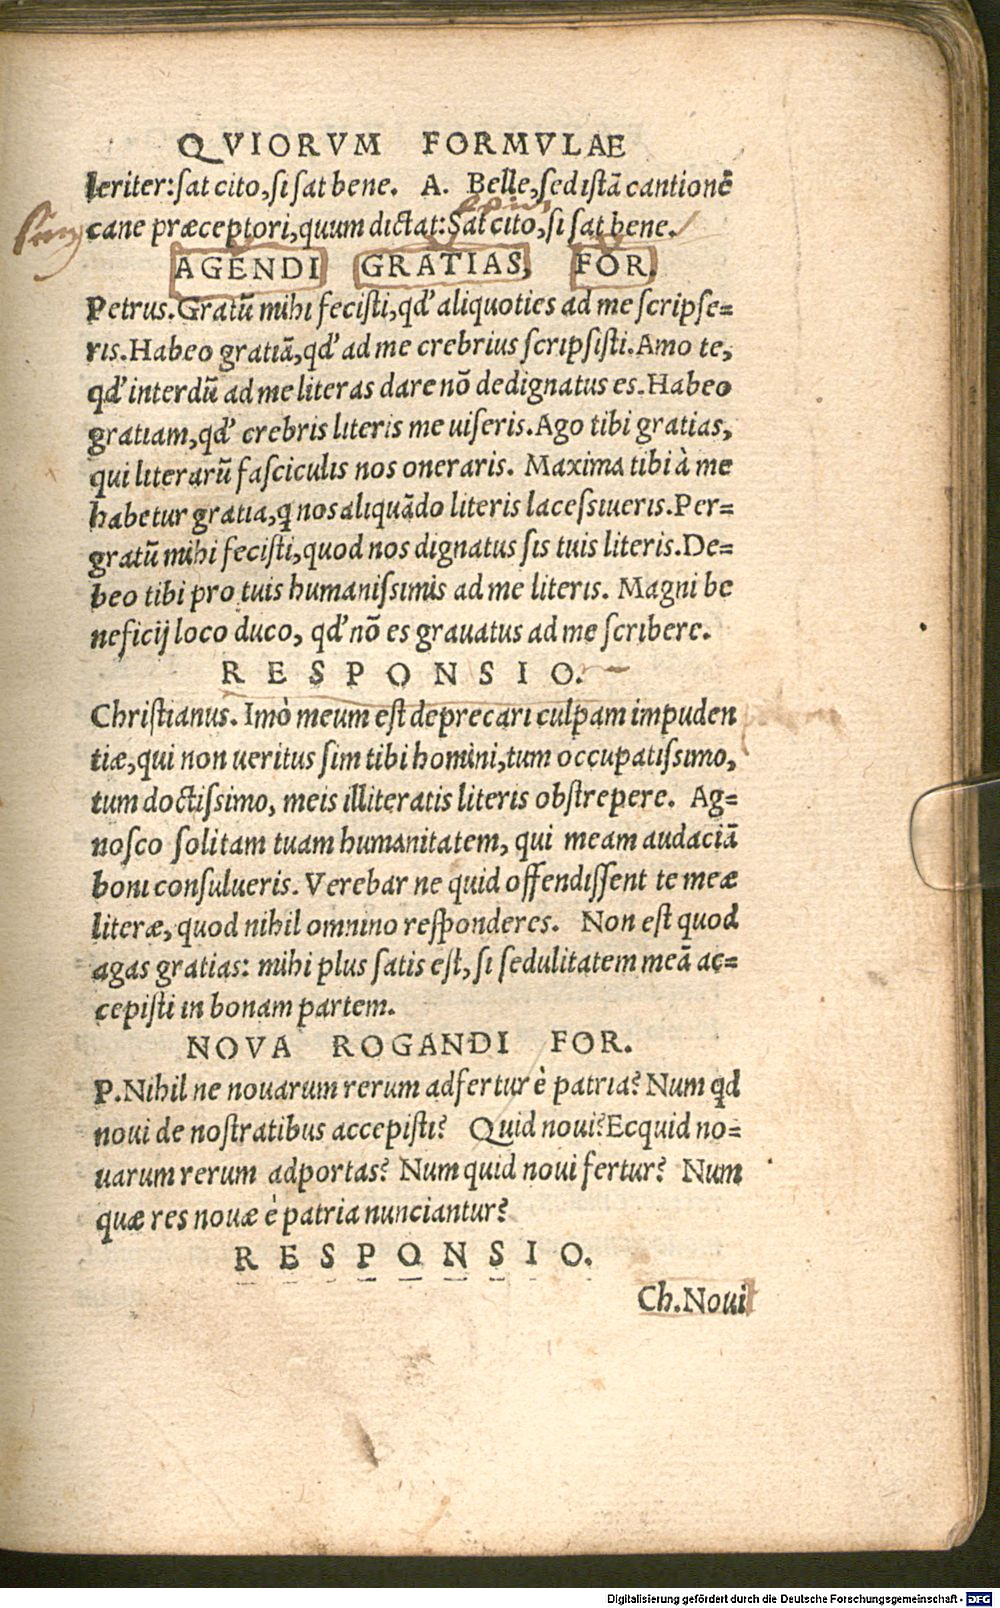 QVIORVM FORMVLAE
leriter:sat cito,si sat bene. A. Belle,sed istā cantionē
cane præceptori,quum dictat:Sat cito,si sat bene.
AGENDI GRATIAS, FOR.
Petrus.Gratū mihi fecisti,qd' aliquoties ad me scripse=
ris.Habeo gratiā,qd' ad me crebrius scripsisti.Amo te,
qd' interdū ad me literas dare nō dedignatus es.Habeo
gratiam,qd' crebris literis me uiseris.Ago tibi gratias,
qui literarū fasciculis nos oneraris. Maxima tibi à me
habetur gratia,q nos aliquādo literis lacessiueris.Per=
gratū mihi fecisti,quod nos dignatus sis tuis literis.De=
beo tibi pro tuis humanissimis ad me literis. Magni be
neficij loco duco, qd' nō es grauatus ad me scribere.
RESPONSIO.
Christianus. Imò meum est deprecari culpam impuden
tiæ,qui non ueritus sim tibi homini,tum occupatissimo,
tum doctissimo, meis illiteratis literis obstrepere. Ag=
nosco solitam tuam humanitatem, qui meam audaciā
boni consulueris. Verebar ne quid offendissent te meæ
literæ, quod nihil omnino responderes. Non est quod
agas gratias: mihi plus satis est, si sedulitatem meā ac=
cepisti in bonam partem.
NOVA ROGANDI FOR.
P.Nihil ne nouarum rerum adfertur è patria? Num qd
noui de nostratibus accepisti? Quid noui?Ecquid no=
uarum rerum adportas? Num quid noui fertur? Num
quæ res nouæ è patria nunciantur?
RESPONSIO.
Ch.Noui
Digitalisierung gefördert durch die Deutsche Forschungsgemeinschaft - DFG